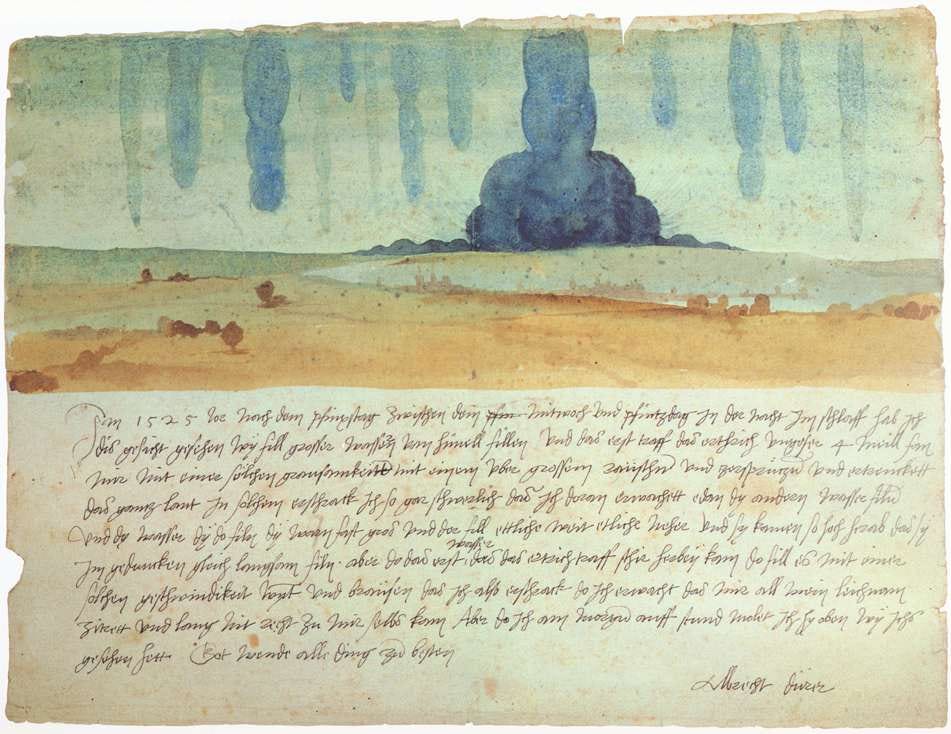 Im 1525 Jor nach dem pfinxstag zwischen dem Mitwoch und pfintzdag in der nacht Im schlaff hab ich
dis gesicht gesehen wy fill grosser wassern vom himell fillen Und das erst traff das erthrich ungefer 4 meill fan
mir mit einer solchen grausamkeitt mit einem uber grossem raüschn und zersprützn und ertrenckett
das gantz lant In solchem erschrack Ich so gar schwerlich das Ich doran erwachett edan dy andern wasser filn
Und dy wasser dy do filn dy warn fast gros und der fill ettliche weit etliche neher und sy kamen so hoch herab das sy
Im gedancken gleich langsam filn. aber do das erst wasser das das ertrich traff schir herbey kam do fill es mit einer
solchen geschwindikeit wynt und braüsen das ich also erschrack do Ich erwacht das mir all mein leichnam
zitrett und lang nit recht zu mir selbs kam Aber do Ich am morgn auff stund molet Ich hy oben wy Ichs
gesehen hett. Got wende alle ding zu besten
Albrecht dürer